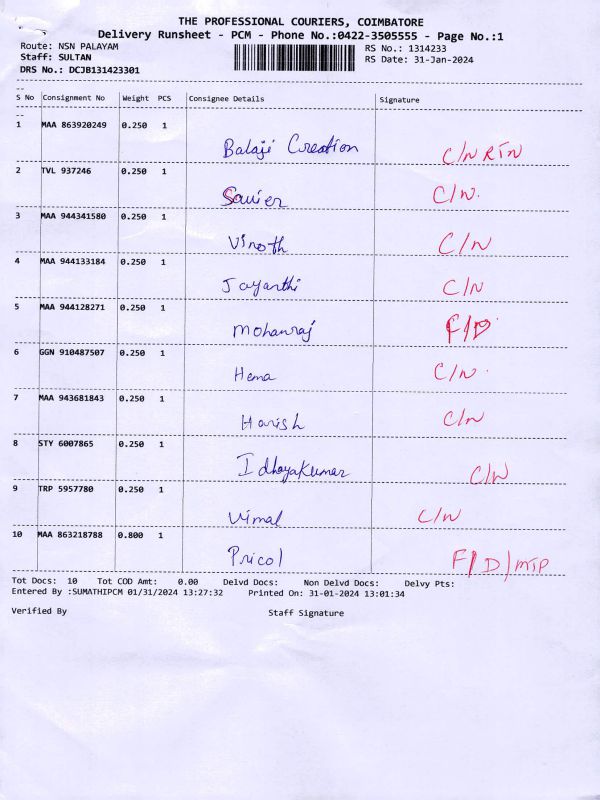 THE PROFESSIONAL COURIERS, COIMBATORE
Delivery Runsheet - PCM - Phone No.:0422-3505555 - Page No.:1
Route: NSN PALAYAM RS No.: 1314233
Staff: SULTAN RS Date: 31-Jan-2024
DRS No.: DCJB131423301
S No Consignment No Weight PCS Consignee Details Signature
1 MAA 863920249 0.250 1
Balaji Creation C/N RTN
2 TVL 937246 0.250 1
Savier C/N.
3 MAA 944341580 0.250 1
Vinoth C/N
4 MAA 944133184 0.250 1
Jayanthi C/N
5 MAA 944128271 0.250 1
Mohanraj F/D
6 GGN 910487507 0.250 1
Hema C/N
7 MAA 943681843 0.250 1
Harish C/N
8 STY 6007865 0.250 1
Idhayakumar C/N
9 TRP 5957780 0.250 1
Vimal C/N
10 MAA 863218788 0.800 1
Pricol F/D/MTP
Tot Docs: 10 Tot COD Amt: 0.00 Delvd Docs: Non Delvd Docs: Delvy Pts:
Entered By :SUMATHIPCM 01/31/2024 13:27:32 Printed On: 31-01-2024 13:01:34
Verified By Staff Signature